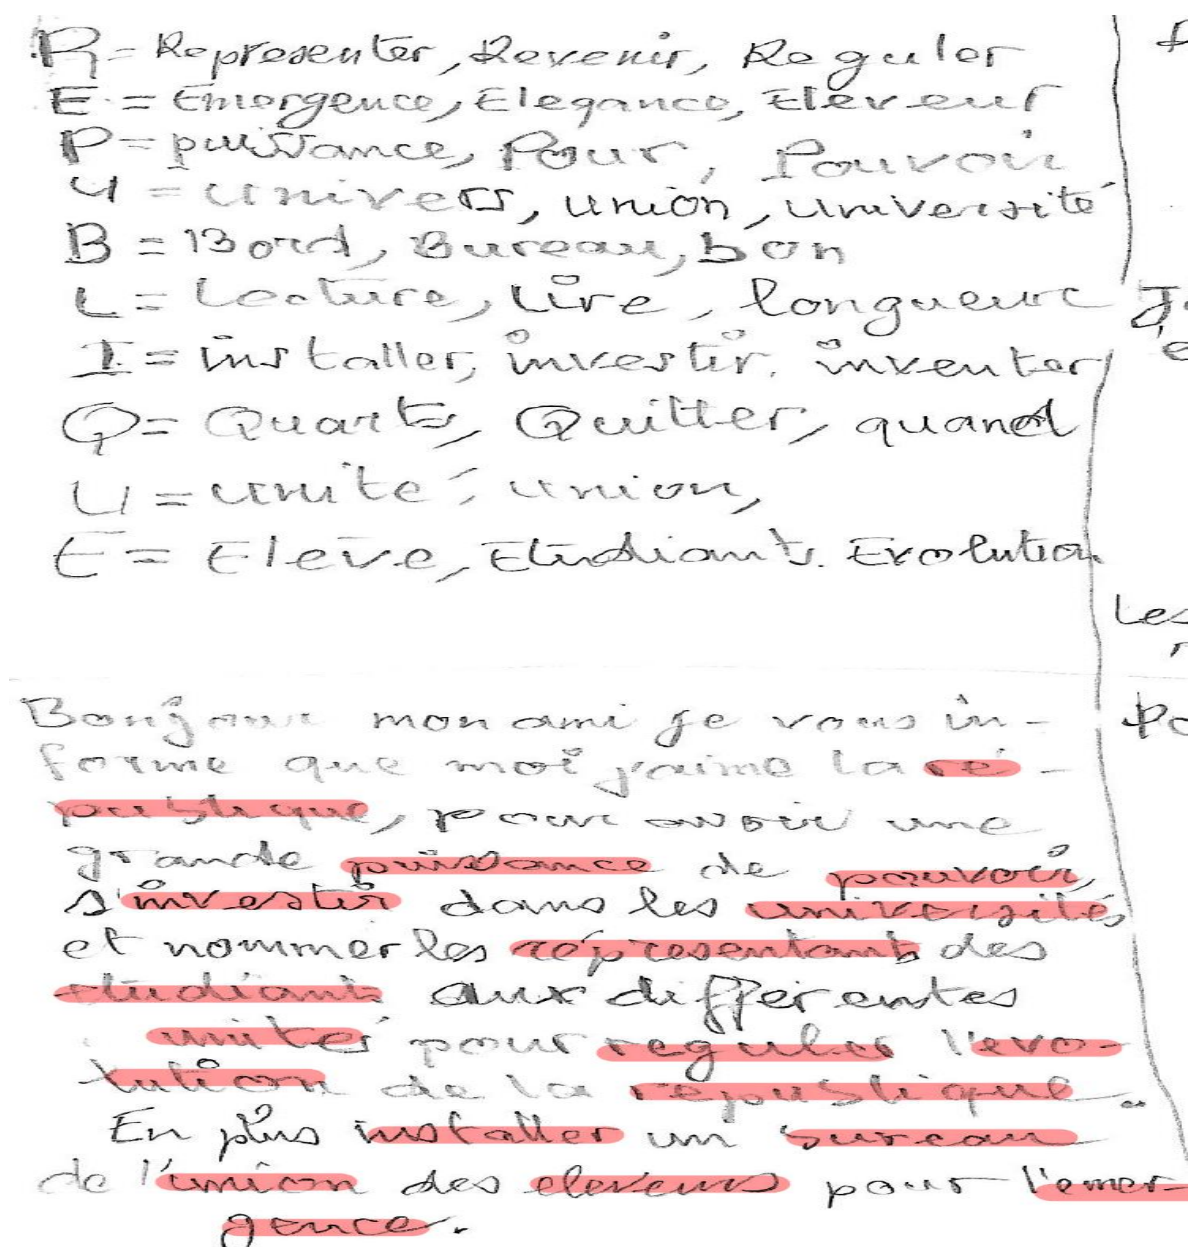 R = Representer, Revenir, Reguler
E = Emergence, Elegance, Eleveur
P = puissance, Pour, Pouvoir
U = univers, union, université
B = Bord, Bureau, bon
L = Lecture, Livre, longueur
I = installer, investir, inventer
Q = Quartz, Quitter, quand
U = unité, union,
E = Eleve, Etudiants. Evolution
Les
Bonjour mon ami je vous in-
forme que moi j'aime la ré-
publique, pour avoir une
grande puissance de pouvoir,
s'investir dans les universités,
et nommer les réprésentants des
étudiants aux differentes
unités pour reguler l'evo-
lution de la republique.
En plus installer un bureau
de l'union des eleveurs pour l'emer-
gence.